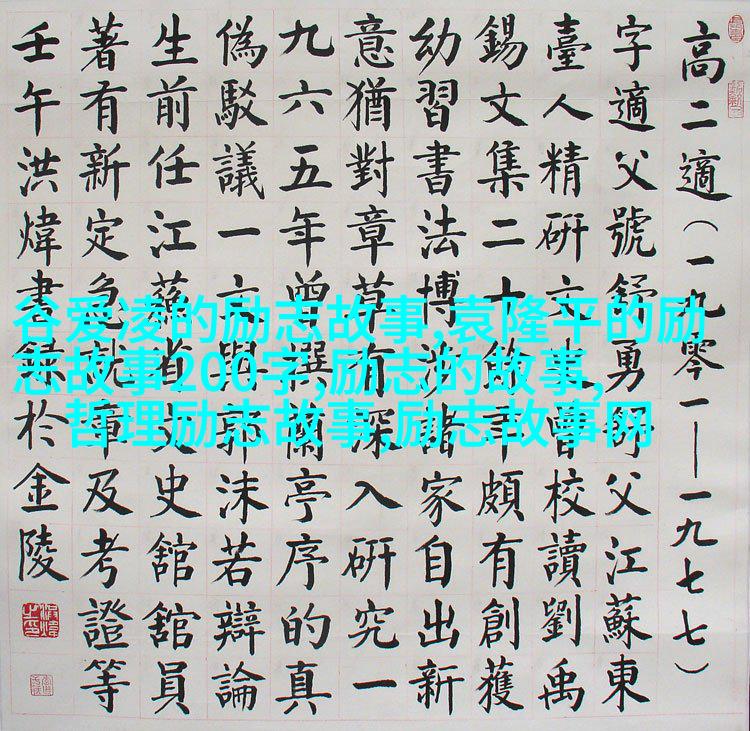 高二適（一九零一——一九七七）
字適父號舒勇舒父江蘇東
臺人精研文史曾校讀劉禹
錫文集二十餘年頗有創獲
幼習書法博涉諸家自出新
意猶對章草有深入研究一
九六五年曾撰蘭亭序的真
偽駁議一文與郭沫若辯論
生前任江蘇省文史舘舘員
著有新定急就章及考證等
壬午洪煒書錄於金陵
谷爱凌的励志故事,袁隆平的励
志故事200字,励志的故事,
哲理励志故事,励志故事网